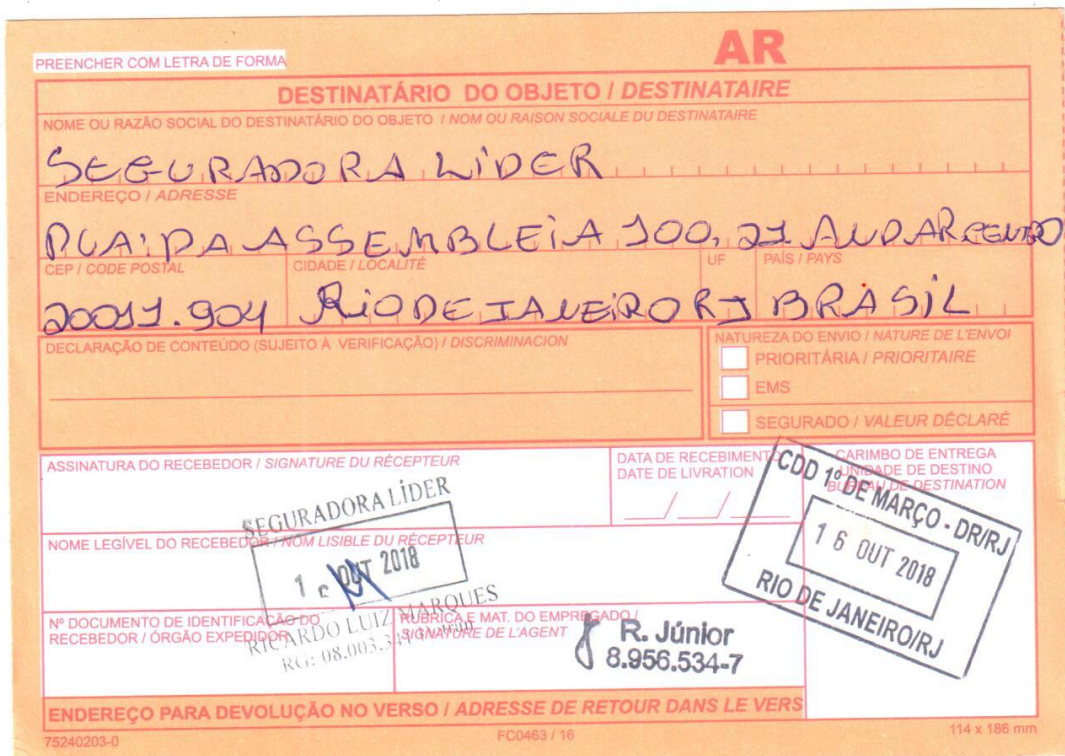 AR
PREENCHER COM LETRA DE FORMA
DESTINATÁRIO DO OBJETO / DESTINATAIRE
NOME OU RAZÃO SOCIAL DO DESTINATÁRIO DO OBJETO / NOM OU RAISON SOCIALE DU DESTINATAIRE
SEGURADORA LÍDER
ENDEREÇO / ADRESSE
RUA: DA ASSEMBLEIA 100, 21 ANDAR CENTRO
CEP / CODE POSTAL CIDADE / LOCALITÉ UF PAÍS / PAYS
20011.904 RIO DE JANEIRO RJ BRASIL
DECLARAÇÃO DE CONTEÚDO (SUJEITO À VERIFICAÇÃO) / DISCRIMINACION
NATUREZA DO ENVIO / NATURE DE L'ENVOI
PRIORITÁRIA / PRIORITAIRE
EMS
SEGURADO / VALEUR DÉCLARÉ
ASSINATURA DO RECEBEDOR / SIGNATURE DU RÉCEPTEUR
DATA DE RECEBIMENTO
DATE DE LIVRATION
CARIMBO DE ENTREGA
UNIDADE DE DESTINO
BUREAU DE DESTINATION
CDD 1º DE MARÇO - DR/RJ
16 OUT 2018
RIO DE JANEIRO/RJ
SEGURADORA LÍDER
NOME LEGÍVEL DO RECEBEDOR / NOM LISIBLE DU RÉCEPTEUR
OUT 2018
RICARDO LUIZ MARQUES
RG: 08.003.
Nº DOCUMENTO DE IDENTIFICAÇÃO DO
RECEBEDOR / ÓRGÃO EXPEDIDOR
RUBRICA E MAT. DO EMPREGADO /
SIGNATURE DE L'AGENT
R. Júnior
8.956.534-7
ENDEREÇO PARA DEVOLUÇÃO NO VERSO / ADRESSE DE RETOUR DANS LE VERS
75240203-0 FC0463 / 16 114 x 186 mm